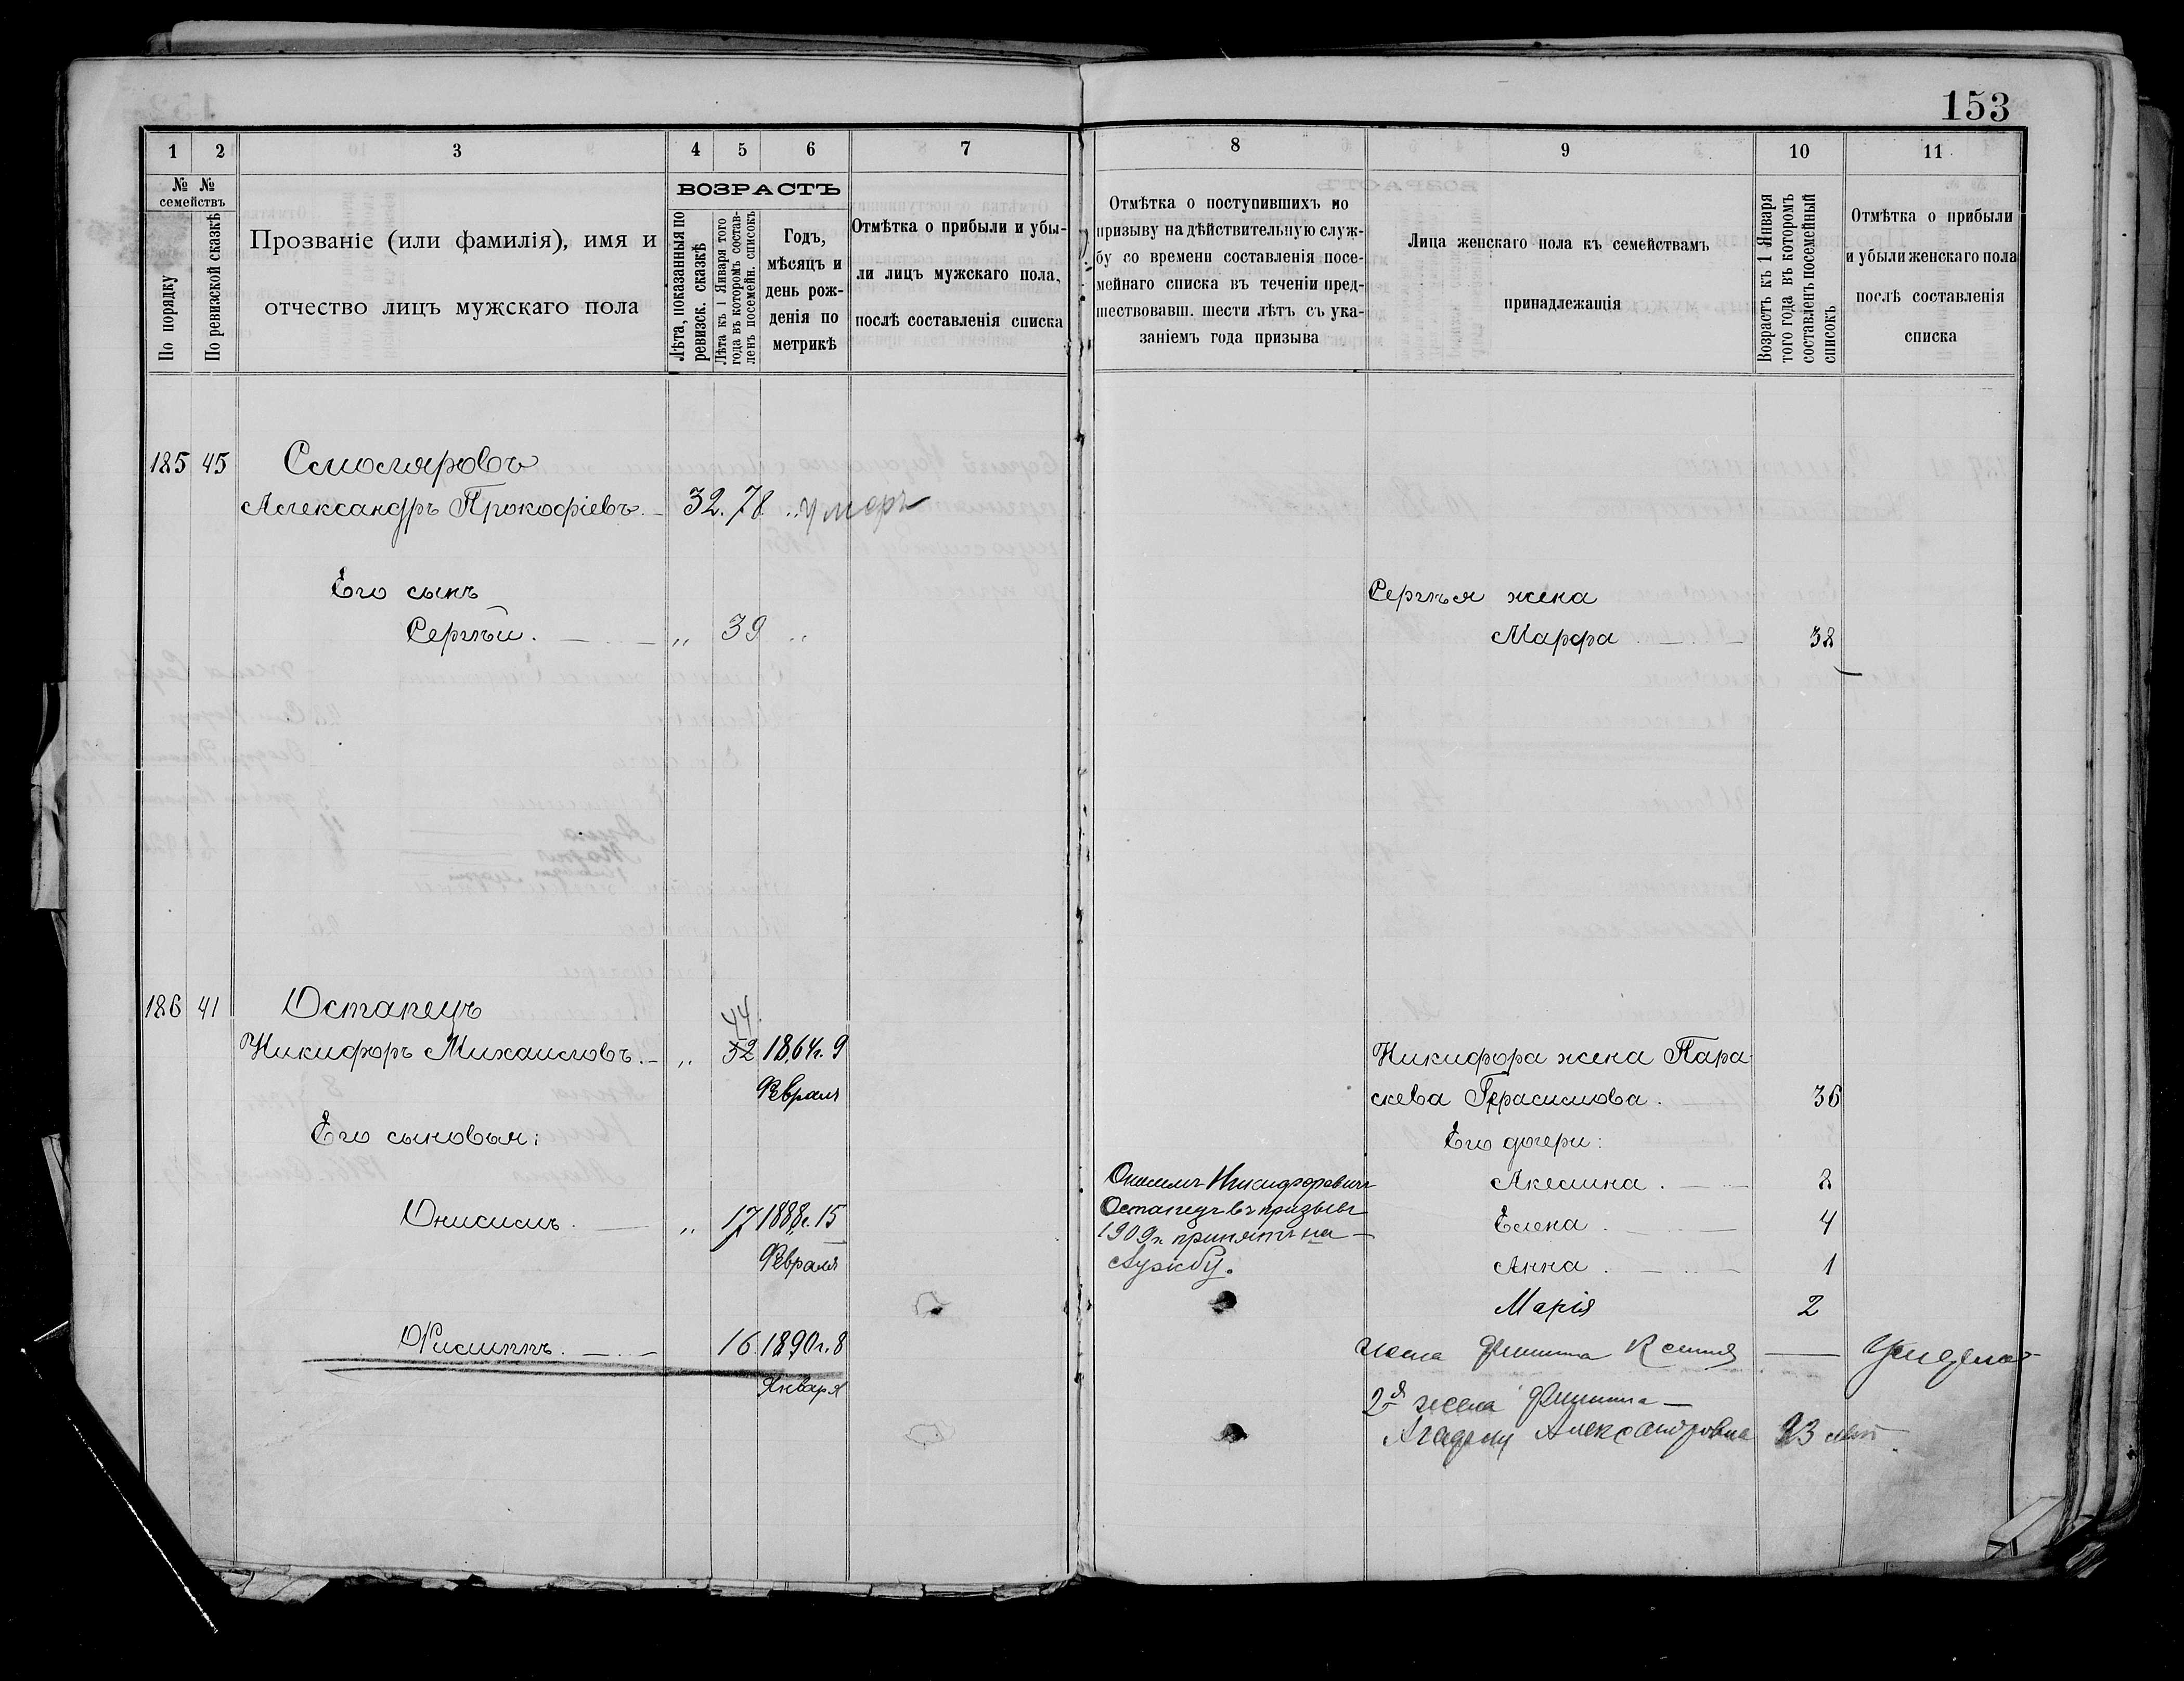 153
1 2 3 4 5 6 7
№ № семействъ
По порядку
По ревизской сказкѣ
Прозваніе (или фамилія), имя и
отчество лицъ мужскаго пола
ВОЗРАСТЪ
Лѣта, показанныя по
ревизск. сказкѣ
Лѣта къ 1 Января того
года въ которомъ состав-
ленъ посемейн. списокъ
Годъ,
мѣсяцъ и
день рож-
денія по
метрикѣ
Отмѣтка о прибыли и убы-
ли лицъ мужскаго пола,
послѣ составленія списка
8 9 10 11
Отмѣтка о поступившихъ по
призыву на дѣйствительную служ-
бу со времени составленія посе-
мейнаго списка въ теченіи пред-
шествовавш. шести лѣтъ съ ука-
заніемъ года призыва
Лица женскаго пола къ семействамъ
принадлежащія
Возрастъ къ 1 Января
того года въ которомъ
составленъ посемейный
списокъ
Отмѣтка о прибыли
и убыли женскаго пола
послѣ составленія
списка
185 45 Смоляровъ
Александръ Прокофіевъ. 32. 78 „ умеръ
Его сынъ
Сергѣй. „ 39 „
Сергѣя жена
Марфа 38
186 41 Остапецъ
44
Никифоръ Михаиловъ. „ 52 1864 г. 9
Февраля
Его сыновья:
Онисимъ. „ 17 1888 г. 15
Февраля
Филиппъ. 16. 1890 г. 8
Января
Онисимъ Никифоровичъ
Остапецъ въ призывъ
1909 г. принятъ на
службу.
Никифора жена Пара-
скева Герасимова. 36
Его дочери:
Акелина. 8
Елена. 4
Анна. 1
Марія 2
жена Филиппа Ксенія
2я жена Филиппа
Александровна 23 лѣт